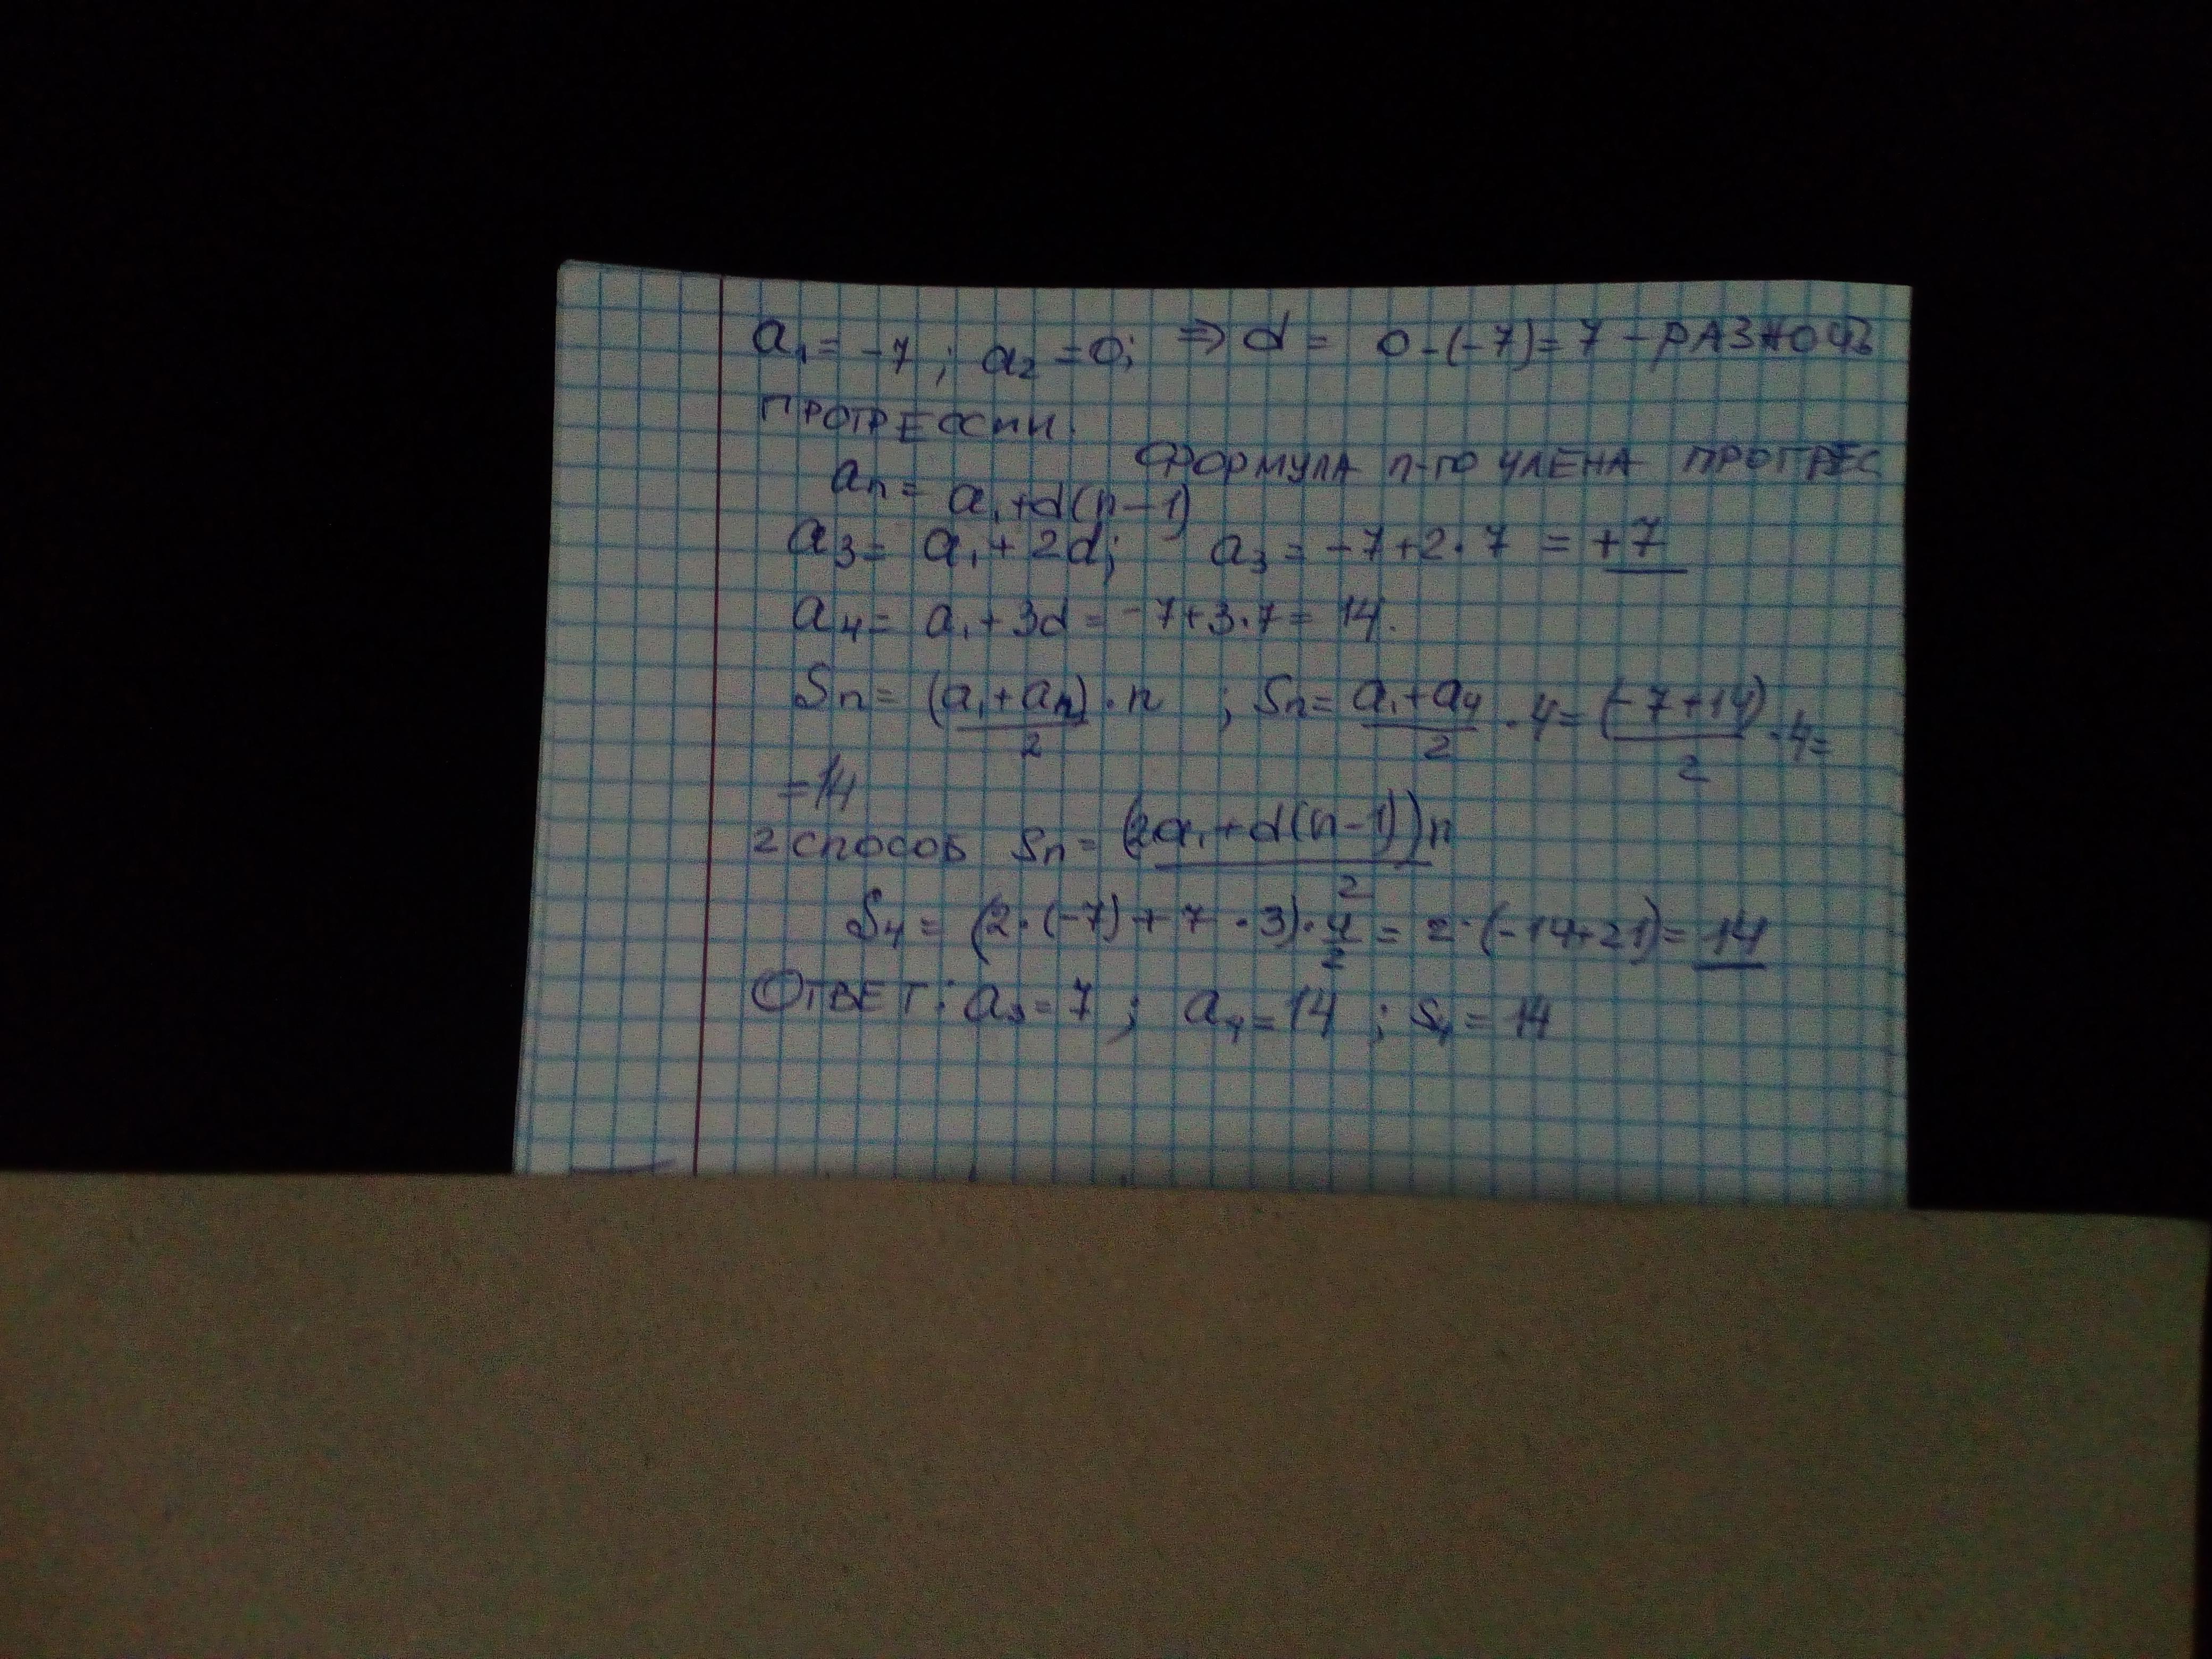 a₁ = -7; a₂ = 0; ⇒ d = 0-(-7) = 7 - РАЗНОСТЬ
ПРОГРЕССИИ.
ФОРМУЛА n-ГО ЧЛЕНА ПРОГРЕС
aₙ = a₁+d(n-1)
a₃ = a₁+2d; a₃ = -7+2·7 = +7
a₄ = a₁+3d = -7+3·7 = 14.
Sₙ = (a₁+aₙ)/2 · n ; Sₙ = a₁+a₄/2 · 4 = (-7+14)/2 · 4 =
= 14
2 СПОСОБ Sₙ = (2a₁+d(n-1))n/2
S₄ = (2·(-7)+7·3)·4/2 = 2·(-14+21) = 14
ОТВЕТ: a₃ = 7; a₄ = 14; S₄ = 14